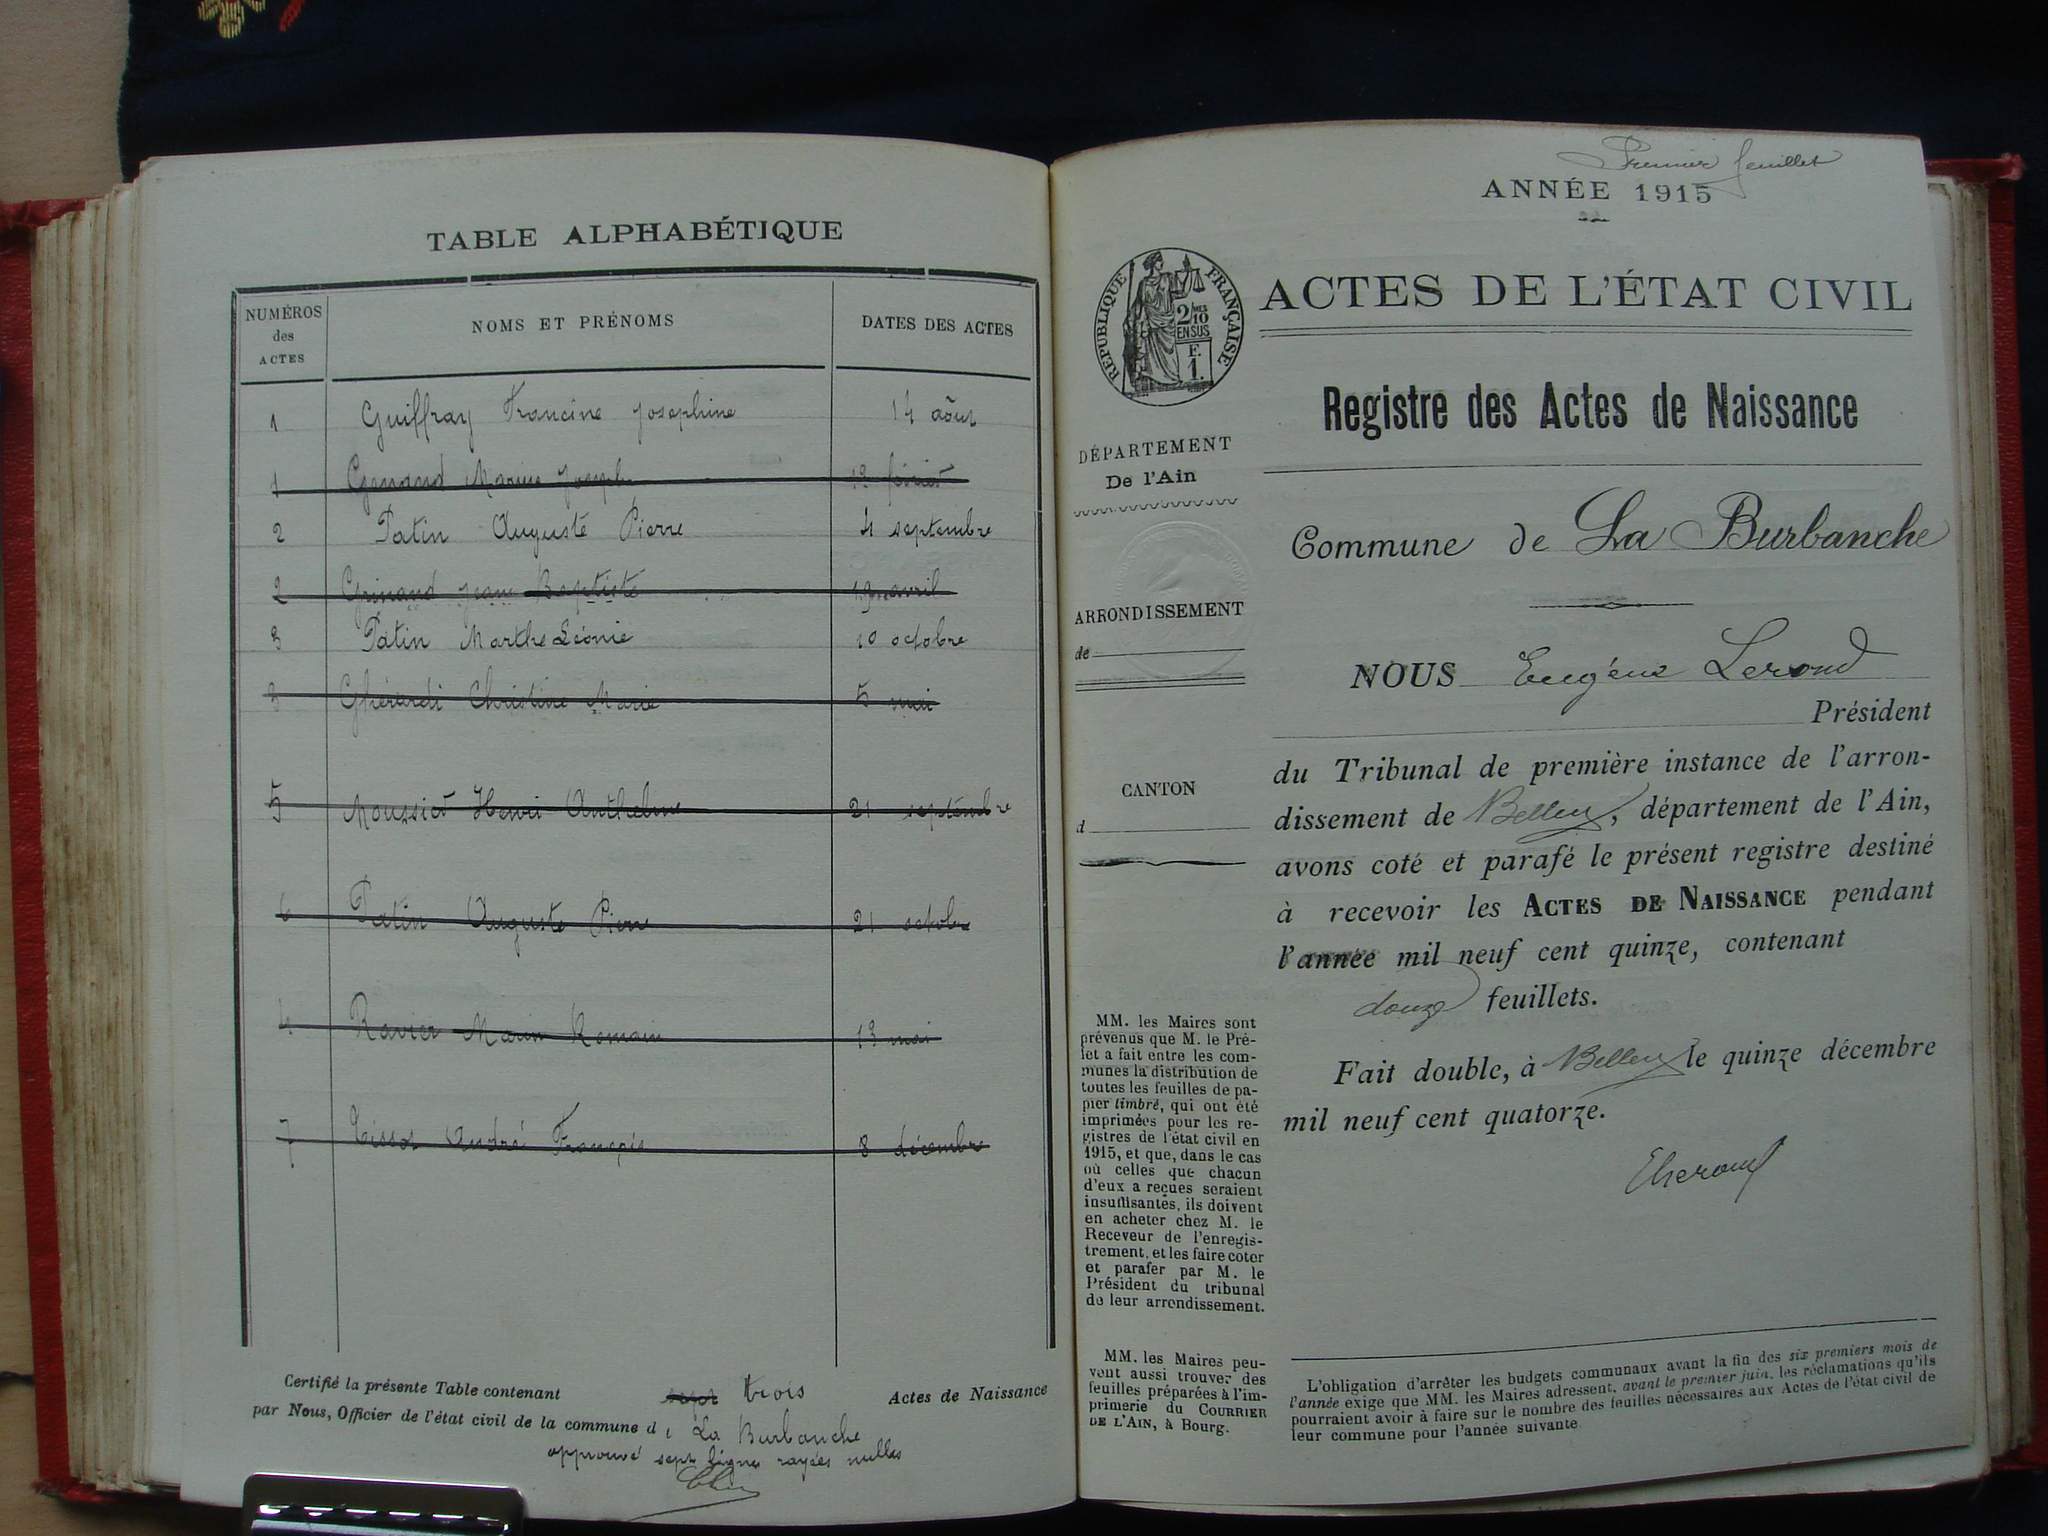 TABLE ALPHABÉTIQUE
NUMÉROS des ACTES
NOMS ET PRÉNOMS
DATES DES ACTES
1 Guiffray Francine Josephine 14 aôut
1 Genand Marius Joseph 12
2 Patin Auguste Pierre 4 septembre
2 Grinand Jean Baptiste 19 avril
3 Patin Marthe Léonie 10 octobre
3 Ghérardi Christine Marie 5 mai
5 Henri Anthelme 21 septembre
6 Patin Auguste Pierre 21 octobre
4 Ravier Marin Romain 13 mai
7 Tissot André François 8 décembre
Certifié la présente Table contenant sept trois Actes de Naissance
par Nous, Officier de l'état civil de la commune d e La Burbanche
approuvé sept lignes rayées nulles
Premier feuillet
ANNÉE 1915
RÉPUBLIQUE FRANÇAISE
2/10
EN SUS
E.
1.
ACTES DE L'ÉTAT CIVIL
Registre des Actes de Naissance
DÉPARTEMENT
De l'Ain
ARRONDISSEMENT
de
CANTON
d
MM. les Maires sont
prévenus que M. le Pré-
fet a fait entre les com-
munes la distribution de
toutes les feuilles de pa-
pier timbré, qui ont été
imprimées pour les re-
gistres de l'état civil en
1915, et que, dans le cas
où celles que chacun
d'eux a reçues seraient
insuffisantes, ils doivent
en acheter chez M. le
Receveur de l'enregis-
trement, et les faire coter
et parafer par M. le
Président du tribunal
de leur arrondissement.
MM. les Maires peu-
vent aussi trouver des
feuilles préparées à l'im-
primerie du COURRIER
DE L'AIN, à Bourg.
Commune de La Burbanche
NOUS Eugène Lerond
Président
du Tribunal de première instance de l'arron-
dissement de Belley, département de l'Ain,
avons coté et parafé le présent registre destiné
à recevoir les ACTES DE NAISSANCE pendant
l'année mil neuf cent quinze, contenant
douze feuillets.
Fait double, à Belley le quinze décembre
mil neuf cent quatorze.
L'obligation d'arrêter les budgets communaux avant la fin des six premiers mois de
l'année exige que MM. les Maires adressent, avant le premier juin, les réclamations qu'ils
pourraient avoir à faire sur le nombre des feuilles nécessaires aux Actes de l'état civil de
leur commune pour l'année suivante